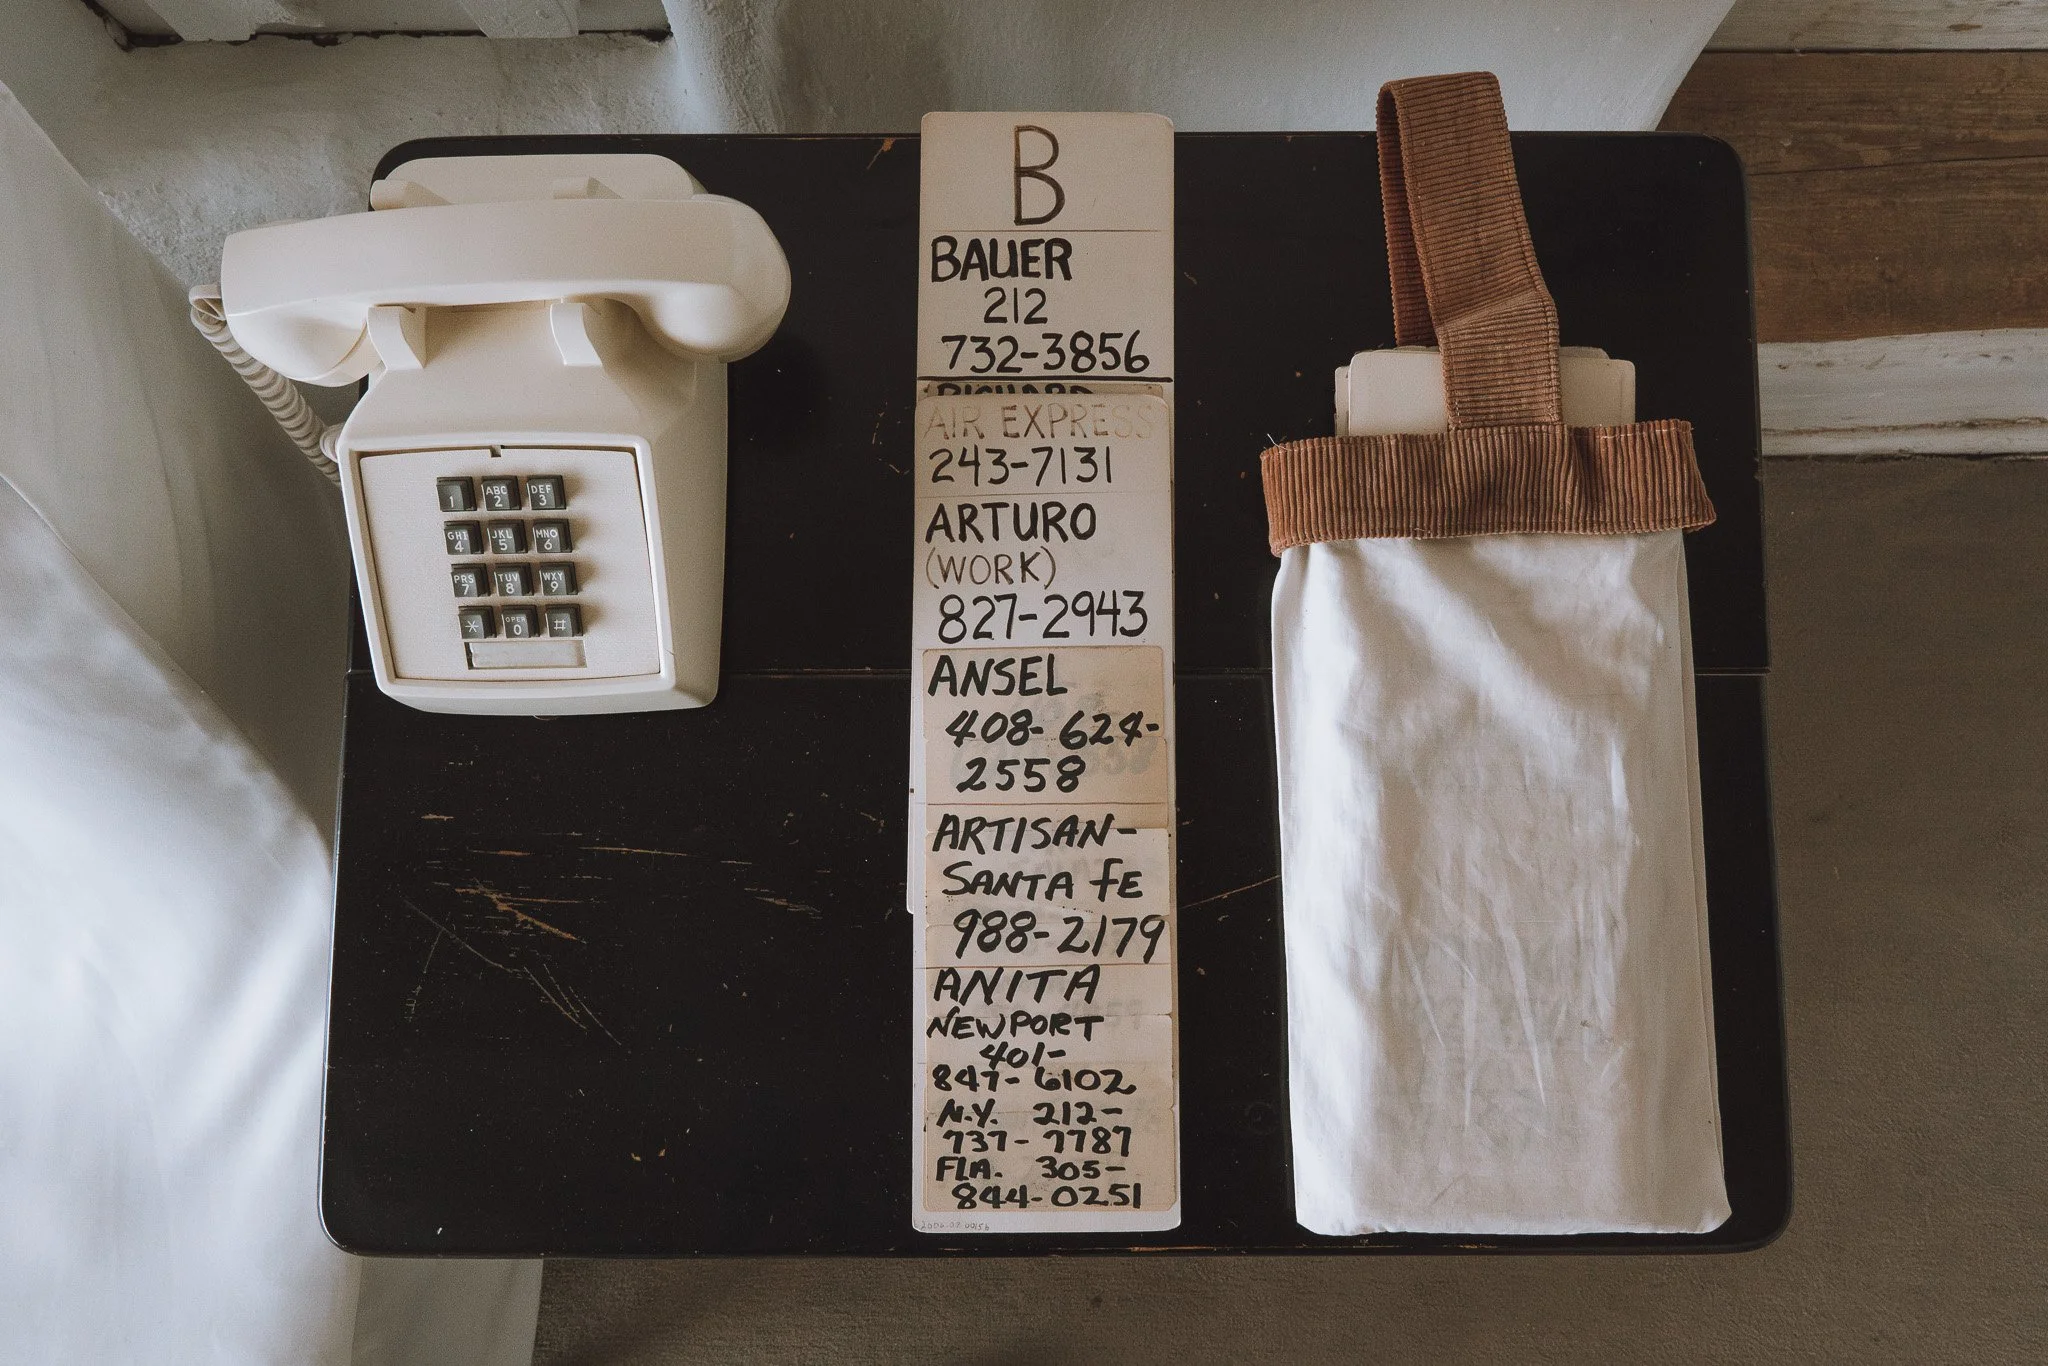 B
BAUER
212
732-3856
RICHARD
AIR EXPRESS
243-7131
ARTURO
(WORK)
827-2943
ANSEL
408-624-
2558
ARTISAN-
SANTA FE
988-2179
ANITA
NEWPORT
401-
847-6102
N.Y. 212-
737-7787
FLA. 305-
844-0251
1
ABC
2
DEF
3
GHI
4
JKL
5
MNO
6
PRS
7
TUV
8
WXY
9
*
OPER
0
#